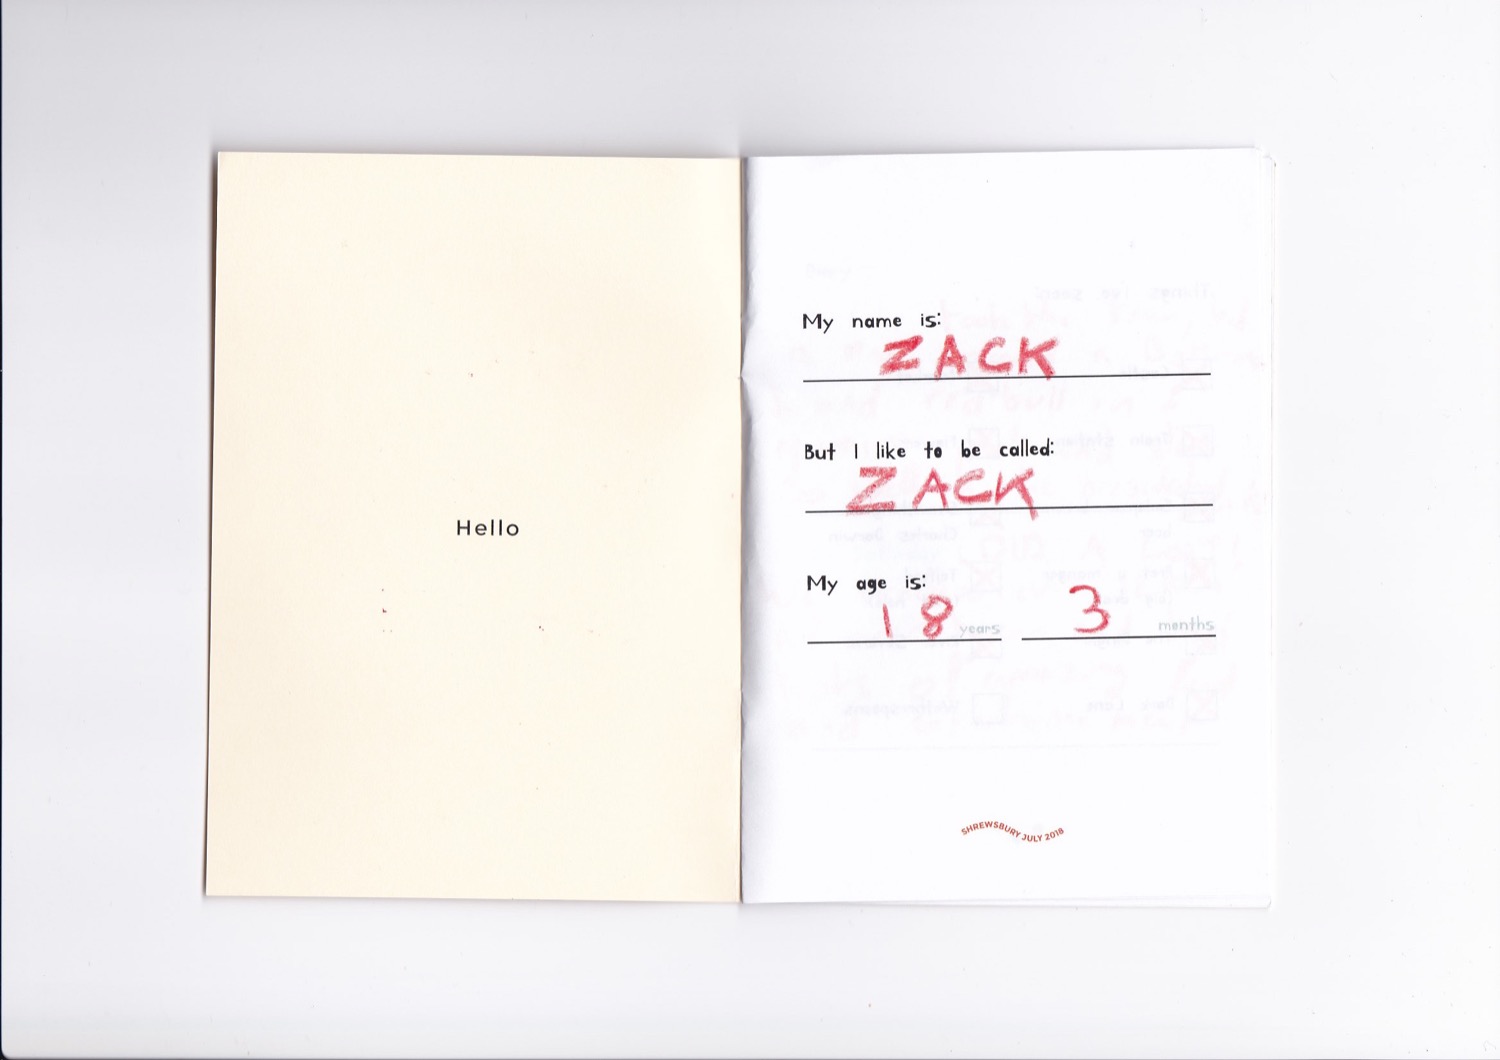 Hello
My name is:
ZACK
But I like to be called:
ZACK
My age is:
18 years 3 months
SHREWSBURY JULY 2018